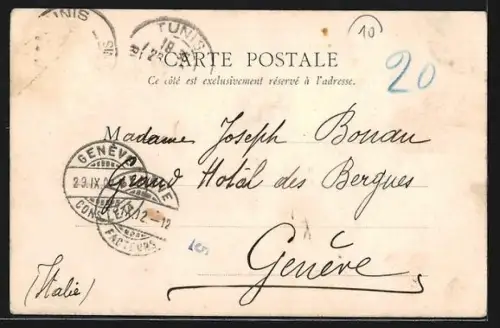 TUNIS
TUNIS
10
CARTE POSTALE
20
Ce côté est exclusivement réservé à l'adresse.
Madame Joseph Bonan
Grand Hotel des Bergues
GENÈVE
29.IX.
FACTEURS
Genève
(Italie)